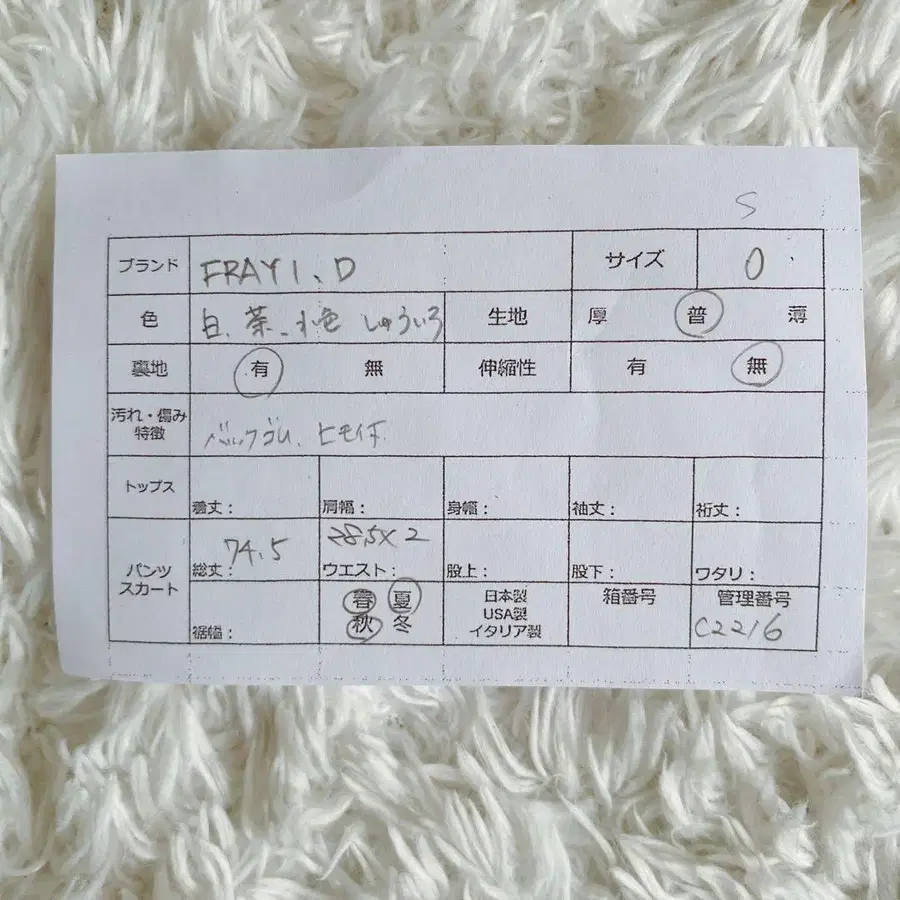 S
ブランド FRAY I.D サイズ 0
色 白、茶、水色 しゅういろ 生地 厚 普 薄
裏地 有 無 伸縮性 有 無
汚れ・傷み
特徴 バックゴム、ヒモ付
トップス 着丈: 肩幅: 身幅: 袖丈: 裄丈:
パンツ
スカート
総丈: 74.5 ウエスト: 28.5×2 股上: 股下: ワタリ:
裾幅: 春 夏
秋 冬
日本製
USA製
イタリア製
箱番号
管理番号
C2216